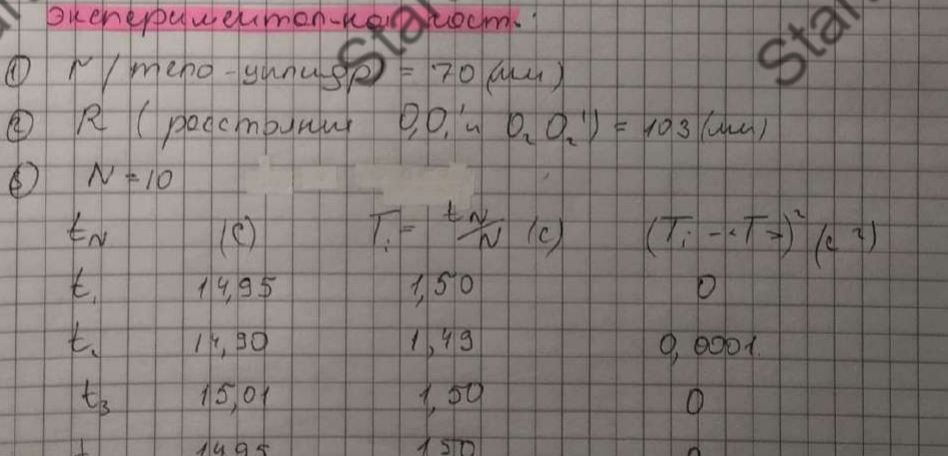 экспериментол-ная част:
① r (тело - цилиндр) = 70 (мм)
② R (расстояния O₁O₁' и O₂O₂') = 103 (мм)
③ N = 10
tN (c) Tᵢ = tN/N (c) (Tᵢ - <T>)² (c²)
t₁ 14,95 1,50 0
t₂ 14,90 1,49 0,0001
t₃ 15,01 1,50 0
14,95 1,50